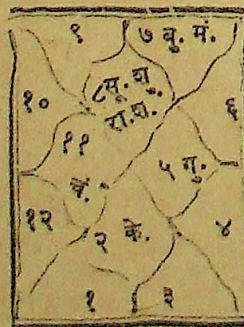 ९ ७ बु. मं.
८ सू. शु.
१० रा. श. ६
११
५ गु.
चं.
१२ २ के. ४
१ ३